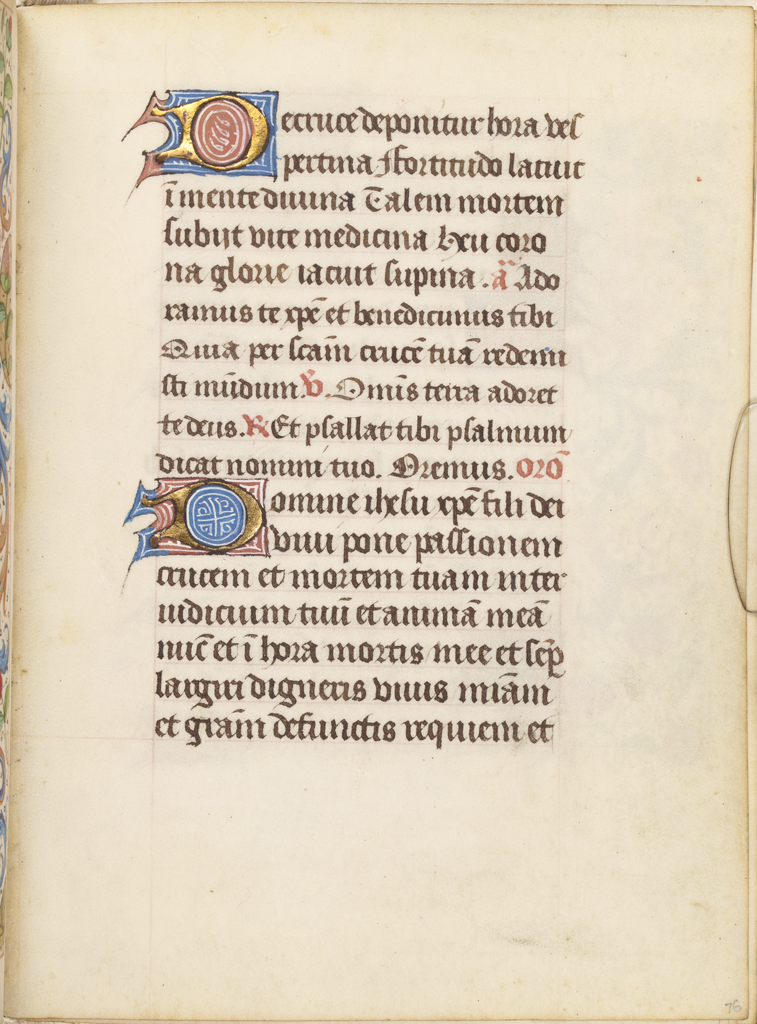 De cruce deponitur hora ves
pertina Fortitudo latuit
ī mente diuina Talem mortem
subijt vite medicina Heu coro
na glorie iacuit supina . ā Ado
ramus te xp̄e et benedicimus tibi
Quia per scām crucē tuā redemi
sti mūdum. V̄. Omīs terra adoret
te deus. R Et psallat tibi psalmum
dicat nomini tuo. Oremus. oro͞
Domine ihesu xp̄e fili dei
viui pone passionem
crucem et mortem tuam inter
iudicium tuū et animā meā
nūc et ī hora mortis mee et sēp
largiri digneris viuis miām
et grām defunctis requiem et
76